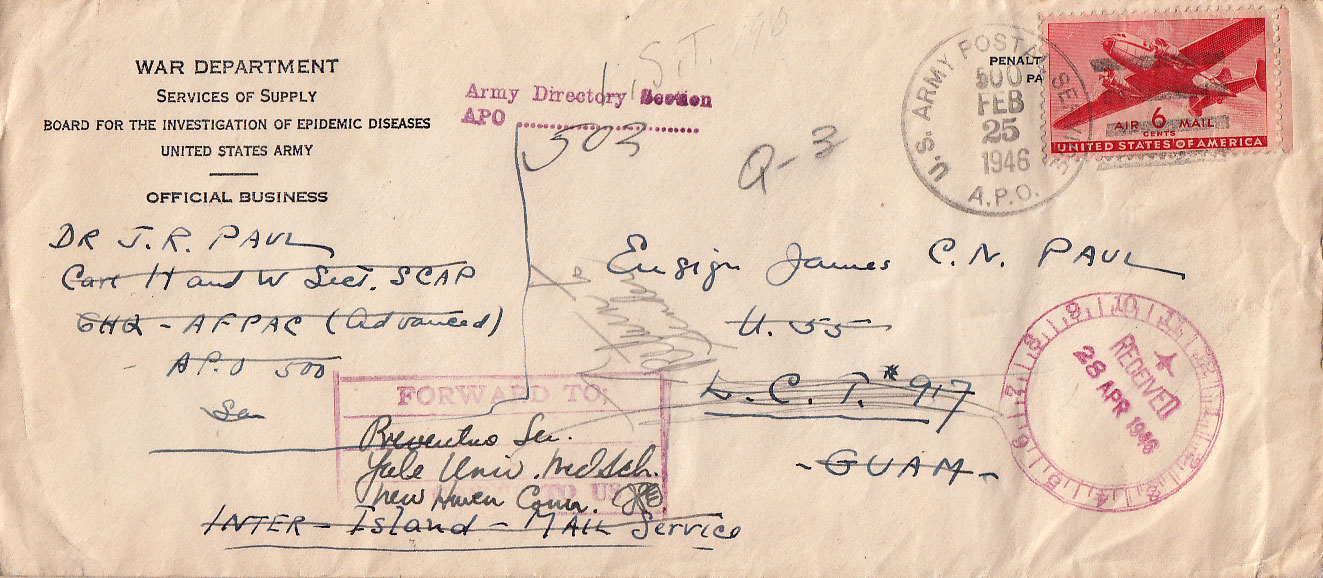 WAR DEPARTMENT
SERVICES OF SUPPLY
BOARD FOR THE INVESTIGATION OF EPIDEMIC DISEASES
UNITED STATES ARMY
OFFICIAL BUSINESS
DR J.R. PAUL
Care H and W Sect. SCAP
GHQ - AFPAC (Advanced)
- A.P.O 500
S.T.
Army Directory Section
APO
503
Q-3
U.S. ARMY POSTAL SERVICE
500
FEB
25
1946
A.P.O.
PENALT
PA
AIR 6 MAIL
CENTS
UNITED STATES OF AMERICA
Ensign James C.N. PAUL
U.SS
L.C.T. # 917
- GUAM -
FORWARD TO:
Preventive
Yale Univ. Med Sch.
New Haven Conn.
TO U
INTER - Island - MAIL Service
9 10 11 12 1 2 3 4 5 6 7 8
RECEIVED
28 APR 1946